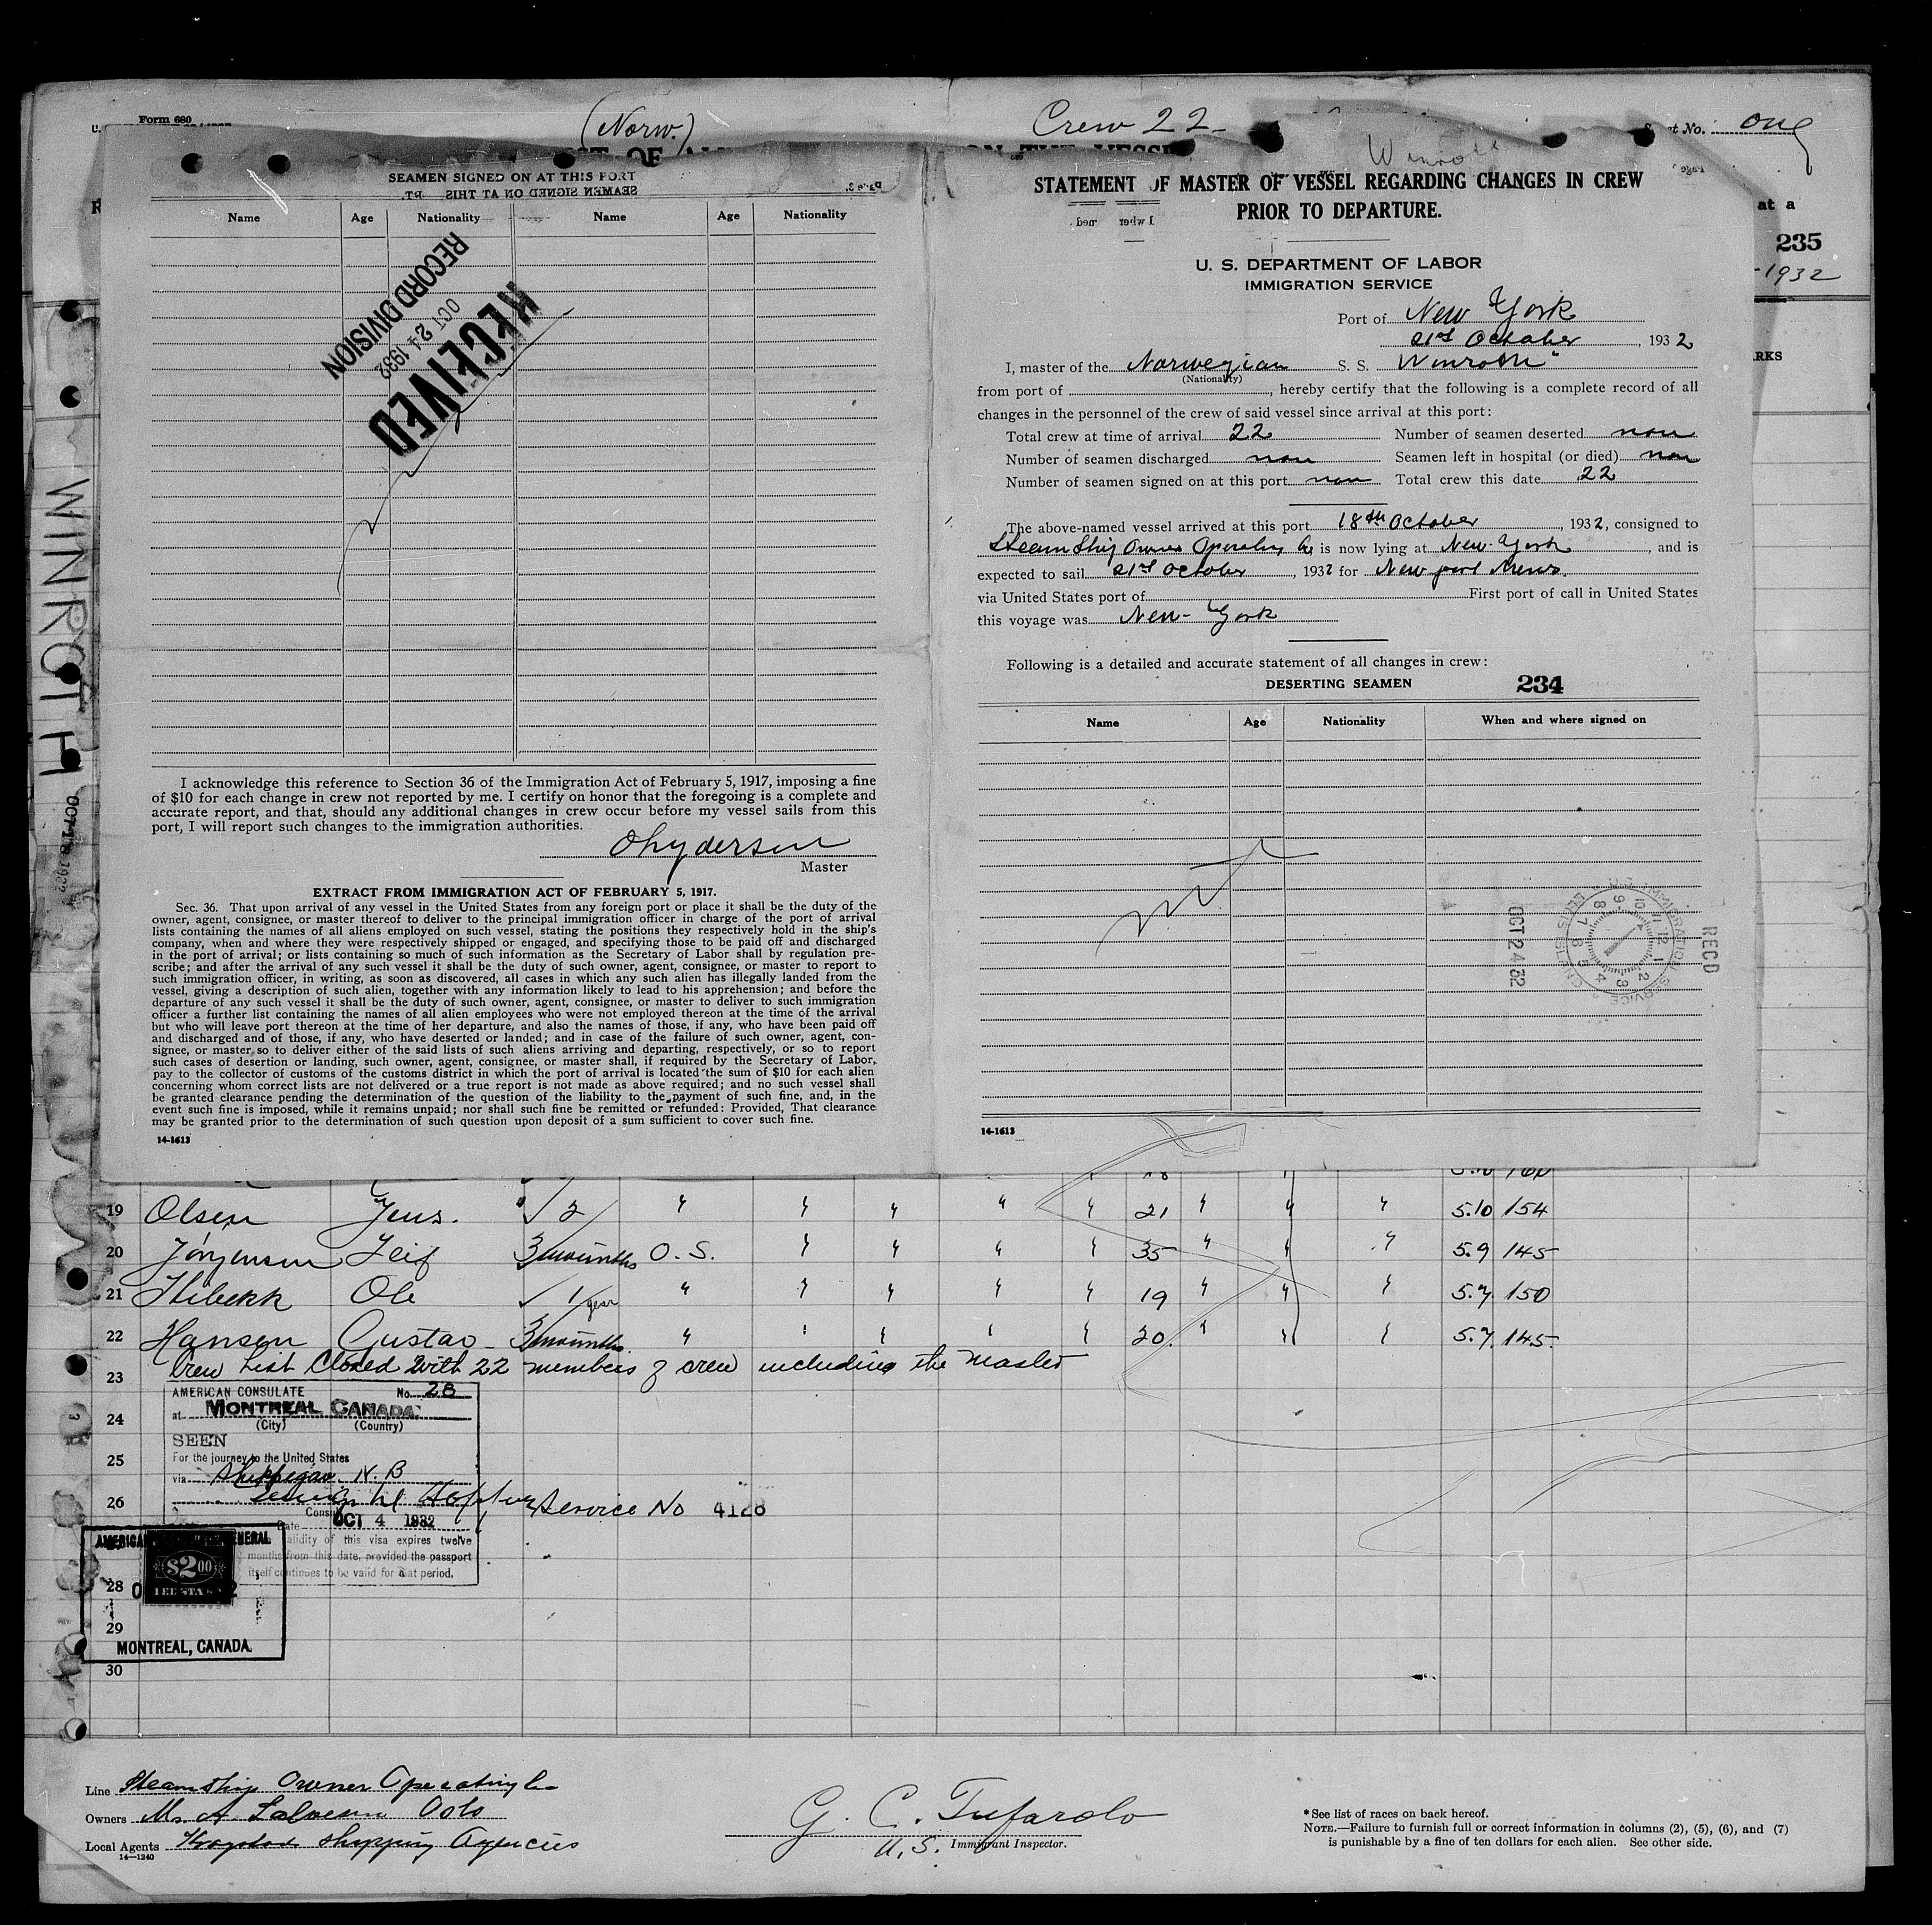 Form 680
(Norw.)
Crew 22-
Sheet No. one
at a
235
-1932
RKS
WINROTH
OCT 18 1932
SEAMEN SIGNED ON AT THIS PORT
Name Age Nationality Name Age Nationality
RECORD DIVISION
OCT 24 1932
RECEIVED
I acknowledge this reference to Section 36 of the Immigration Act of February 5, 1917, imposing a fine
of $10 for each change in crew not reported by me. I certify on honor that the foregoing is a complete and
accurate report, and that, should any additional changes in crew occur before my vessel sails from this
port, I will report such changes to the immigration authorities.
Master
EXTRACT FROM IMMIGRATION ACT OF FEBRUARY 5, 1917.
Sec. 36. That upon arrival of any vessel in the United States from any foreign port or place it shall be the duty of the
owner, agent, consignee, or master thereof to deliver to the principal immigration officer in charge of the port of arrival
lists containing the names of all aliens employed on such vessel, stating the positions they respectively hold in the ship's
company, when and where they were respectively shipped or engaged, and specifying those to be paid off and discharged
in the port of arrival; or lists containing so much of such information as the Secretary of Labor shall by regulation pre-
scribe; and after the arrival of any such vessel it shall be the duty of such owner, agent, consignee, or master to report to
such immigration officer, in writing, as soon as discovered, all cases in which any such alien has illegally landed from the
vessel, giving a description of such alien, together with any information likely to lead to his apprehension; and before the
departure of any such vessel it shall be the duty of such owner, agent, consignee, or master to deliver to such immigration
officer a further list containing the names of all alien employees who were not employed thereon at the time of the arrival
but who will leave port thereon at the time of her departure, and also the names of those, if any, who have been paid off
and discharged and of those, if any, who have deserted or landed; and in case of the failure of such owner, agent, con-
signee, or master so to deliver either of the said lists of such aliens arriving and departing, respectively, or so to report
such cases of desertion or landing, such owner, agent, consignee, or master shall, if required by the Secretary of Labor,
pay to the collector of customs of the customs district in which the port of arrival is located the sum of $10 for each alien
concerning whom correct lists are not delivered or a true report is not made as above required; and no such vessel shall
be granted clearance pending the determination of the question of the liability to the payment of such fine, and, in the
event such fine is imposed, while it remains unpaid; nor shall such fine be remitted or refunded: Provided, That clearance
may be granted prior to the determination of such question upon deposit of a sum sufficient to cover such fine.
14-1613
STATEMENT OF MASTER OF VESSEL REGARDING CHANGES IN CREW
PRIOR TO DEPARTURE.
U. S. DEPARTMENT OF LABOR
IMMIGRATION SERVICE
Port of New York
21st October, 1932
I, master of the Norwegian S. S. Winroth"
(Nationality)
from port of , hereby certify that the following is a complete record of all
changes in the personnel of the crew of said vessel since arrival at this port:
Total crew at time of arrival 22 Number of seamen deserted non
Number of seamen discharged non Seamen left in hospital (or died) non
Number of seamen signed on at this port non Total crew this date 22
The above-named vessel arrived at this port 18th October, 1932, consigned to
SteamShip Owner Operating Co, is now lying at New-York, and is
expected to sail 21st October, 1932 for New port News.
via United States port of First port of call in United States
this voyage was New-York
Following is a detailed and accurate statement of all changes in crew:
DESERTING SEAMEN 234
Name Age Nationality When and where signed on
U.S. IMMIGRATION SERVICE
ELLIS ISLAND
RECD
OCT 24 32
14-1613
19 Olsen Jens. " / 2 " " " " " 21 " " " 5.10 154
20 Jörgensen Leif 3 mounths O.S. " " " " 35 " " " 5.9 145
21 Ole 1 year " " " " " 19 " " " 5.7 150
22 Hansen Gustav 3 mounths " " " " " 20. " " " 5.7. 145.
23 Crew List Closed with 22 members of crew including the Master
24
25
26
28
29
30
AMERICAN CONSULATE No. 28
at MONTREAL CANADA.
(City) (Country)
SEEN
For the journey to the United States
via Shippegan N.B
Service No 4128
Date OCT 4 1932
validity of this visa expires twelve
months from this date, provided the passport
itself continues to be valid for that period.
$2.00
FEE STAMP
MONTREAL, CANADA.
Line Steamship Owner Operating Co
Owners Oslo
Local Agents shipping Agencies
14-1240
G. C. Tufarolo
U.S. Immigrant Inspector.
*See list of races on back hereof.
NOTE.—Failure to furnish full or correct information in columns (2), (5), (6), and (7)
is punishable by a fine of ten dollars for each alien. See other side.